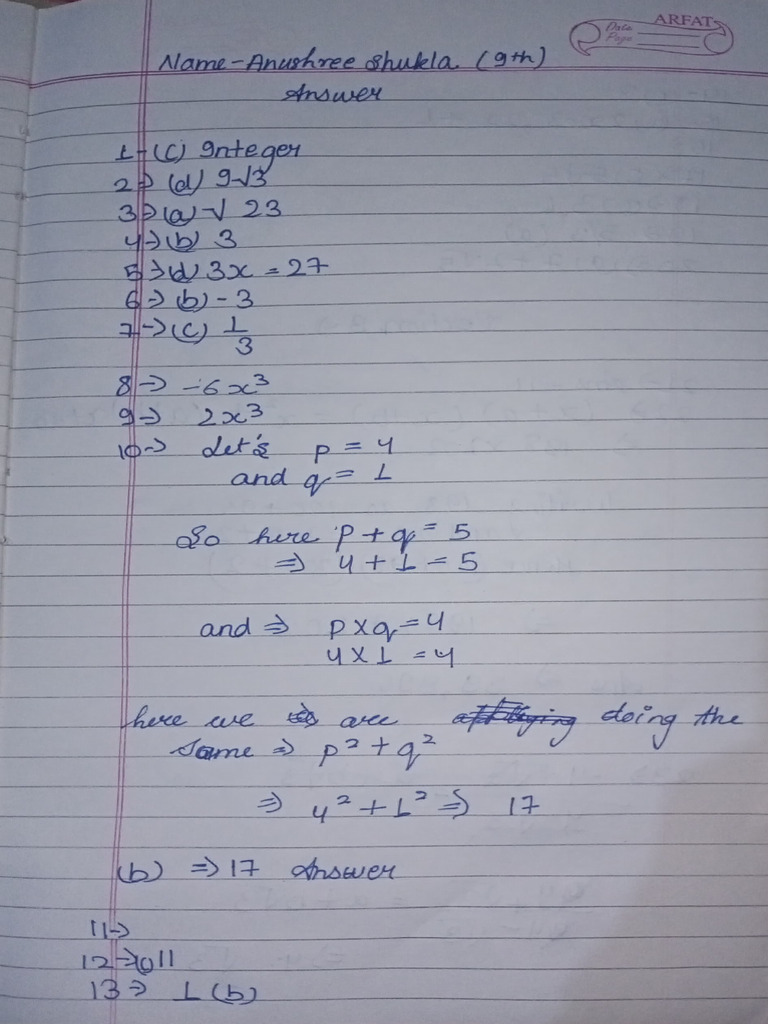 ARFAT
Date
Page
Name-Anushree Shukla. (9th)
Answer
1-(c) Integer
2→ (d) 9√3
3→(a)-√ 23
4→(b) 3
5→(d) 3x = 27
6→ (b) - 3
7→(c) 1/3
8→ -6x³
9→ 2x³
10→ Let's p = 4
and q = 1
So here P + q = 5
⇒ 4 + 1 = 5
and ⇒ p x q = 4
4 x 1 = 4
here we are doing the
same ⇒ p² + q²
⇒ 4² + 1² ⇒ 17
(b) ⇒ 17 Answer
11→
12→ 11
13→ 1 (b)